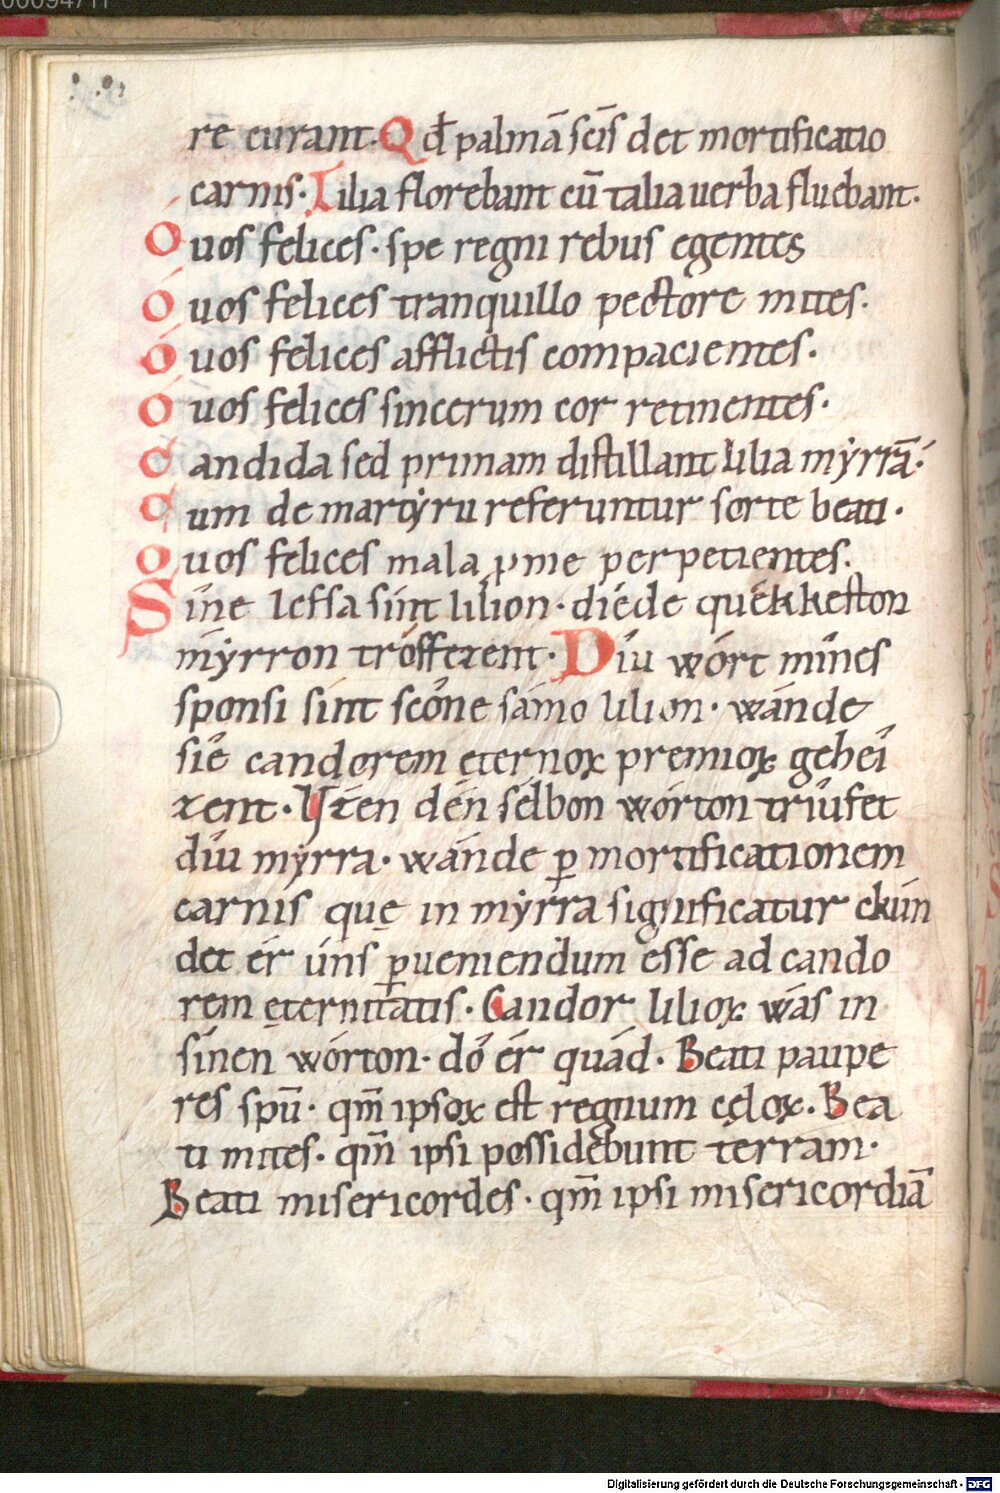 00094711
re curant. Qđ palmā scīs det mortificatio
carnis. Lilia florebant cū talia uerba fluebant.
O uos felices. spe regni rebus egentes
O uos felices tranquillo pectore mites.
O uos felices afflictis compacientes.
O uos felices sincerum cor retinentes.
Candida sed primam distillant lilia mẏrrā.
Cum de martẏru referuntur sorte beati.
O uos felices mala p me perpetientes.
Sîne lefsa sint lilion. dîede quékkeston
mẏrron trôffezent. Díu wórt mînes
sponsi sint scóne sámo lilion. wánde
sîe candorem ęternoꝝ premioꝝ gehéi
zent. Ụzen dén sélbon wórton tríufet
díu mẏrra. wánde ꝑ mortificationem
carnis quę in mẏrra significatur ckún
det ér úns ꝑueniendum esse ad cando
rem ęternitatis. Candor lilioꝝ wás in
sînen wórton. dó ér quád. Beati paupe
res spū. qm̄ ipsoꝝ est regnum cęloꝝ. Bea
ti mites. qm̄ ipsi possidebunt terram.
Beati misericordes. qm̄ ipsi misericordiā
Digitalisierung gefördert durch die Deutsche Forschungsgemeinschaft - DFG